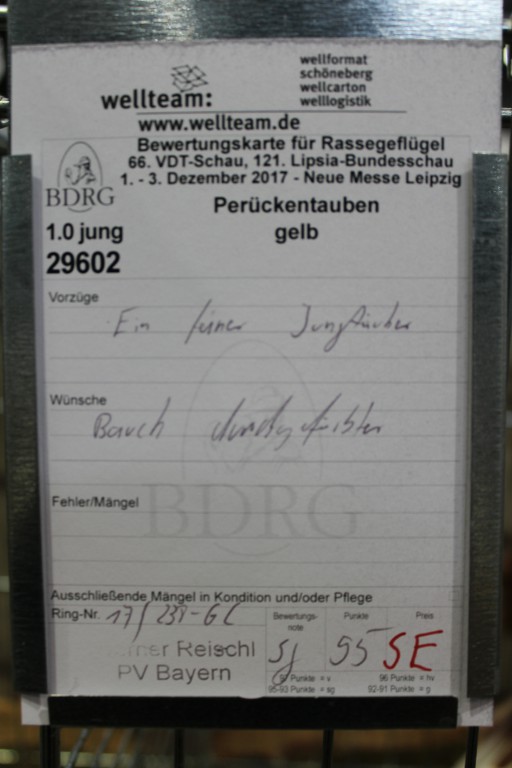 wellteam:
wellformat
schöneberg
wellcarton
welllogistik
www.wellteam.de
Bewertungskarte für Rassegeflügel
66. VDT-Schau, 121. Lipsia-Bundesschau
1. - 3. Dezember 2017 - Neue Messe Leipzig
BDRG
Perückentauben
1.0 jung gelb
29602
Vorzüge
Ein feiner Jungtäuber
Wünsche
Bauch durchgefärbter
BDRG
Fehler/Mängel
Ausschließende Mängel in Kondition und/oder Pflege
Ring-Nr. 17/238-GC
Bewertungs-note Punkte Preis
sg 95 SE
Reischl
PV Bayern
97 Punkte = v 96 Punkte = hv
95-93 Punkte = sg 92-91 Punkte = g